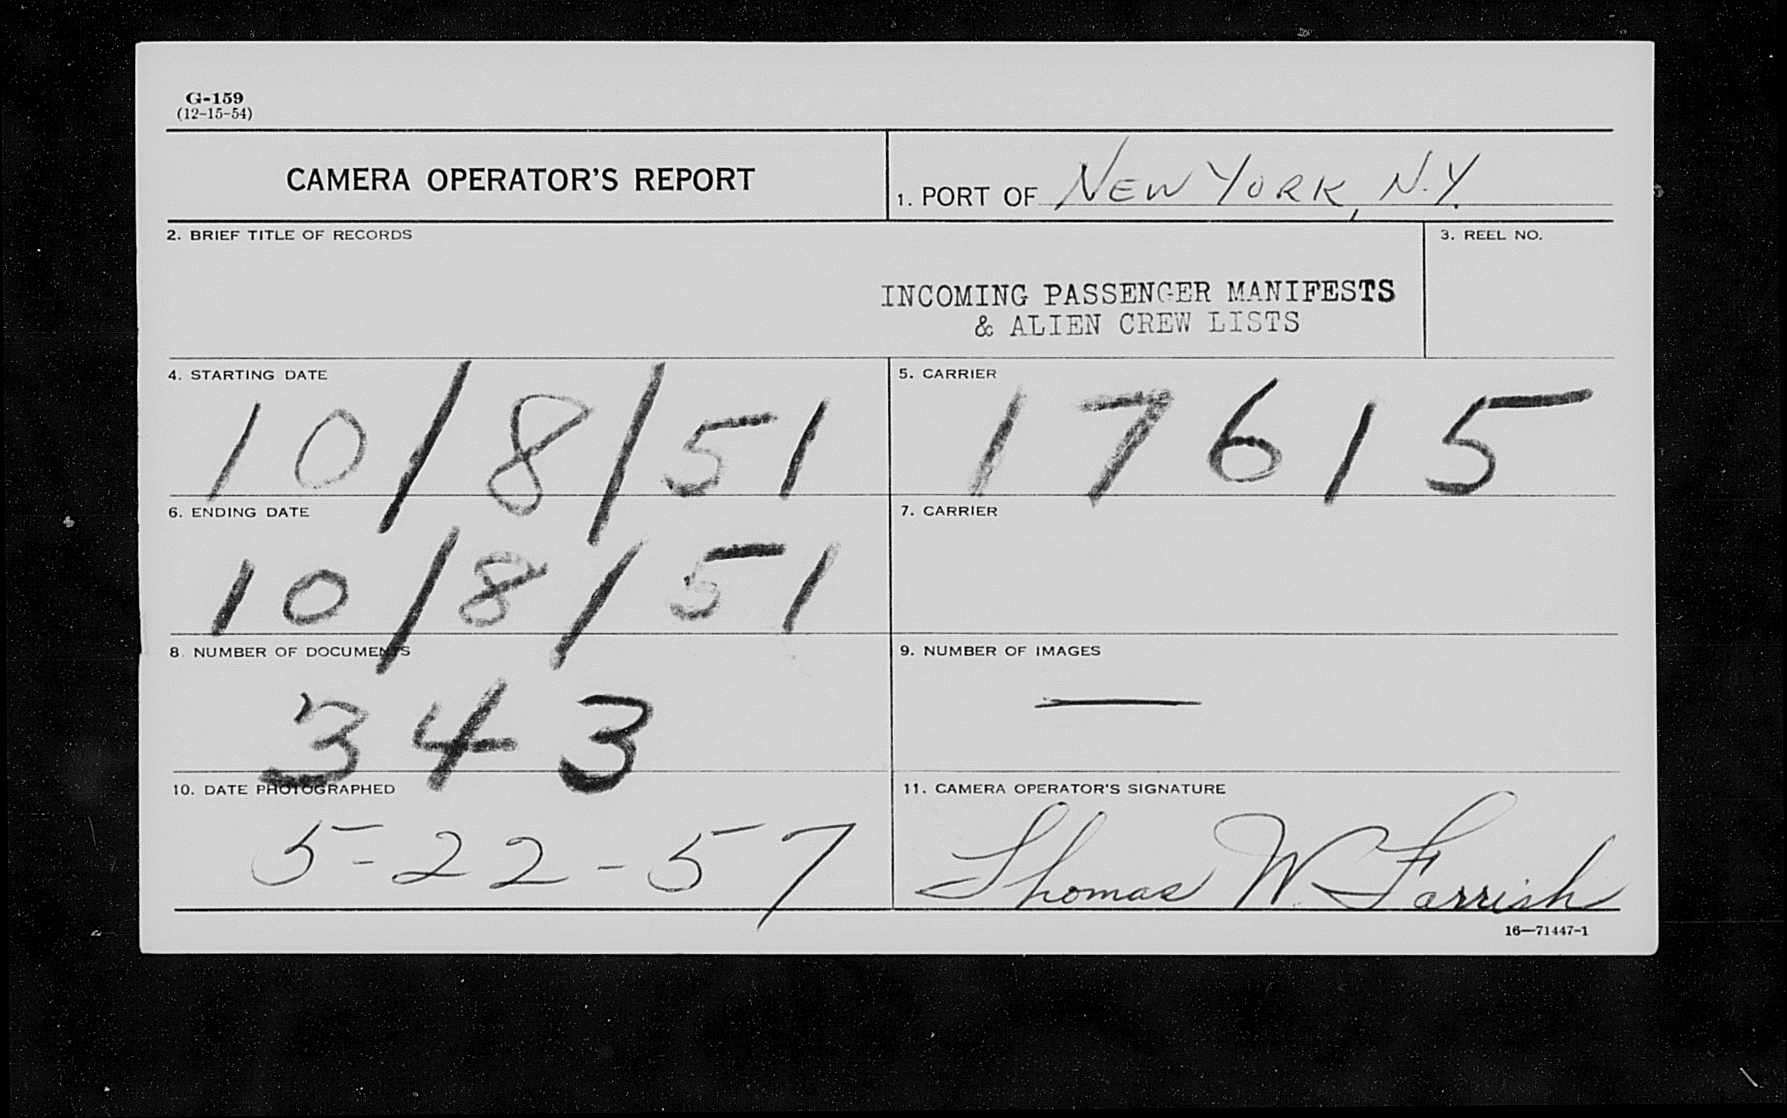 G-159
(12-15-54)
CAMERA OPERATOR'S REPORT
1. PORT OF New York, N.Y.
2. BRIEF TITLE OF RECORDS
INCOMING PASSENGER MANIFESTS
& ALIEN CREW LISTS
3. REEL NO.
4. STARTING DATE
10/8/51
5. CARRIER
17615
6. ENDING DATE
10/8/51
7. CARRIER
8. NUMBER OF DOCUMENTS
343
9. NUMBER OF IMAGES
—
10. DATE PHOTOGRAPHED
5-22-57
11. CAMERA OPERATOR'S SIGNATURE
Thomas W. Farrish
16—71447-1